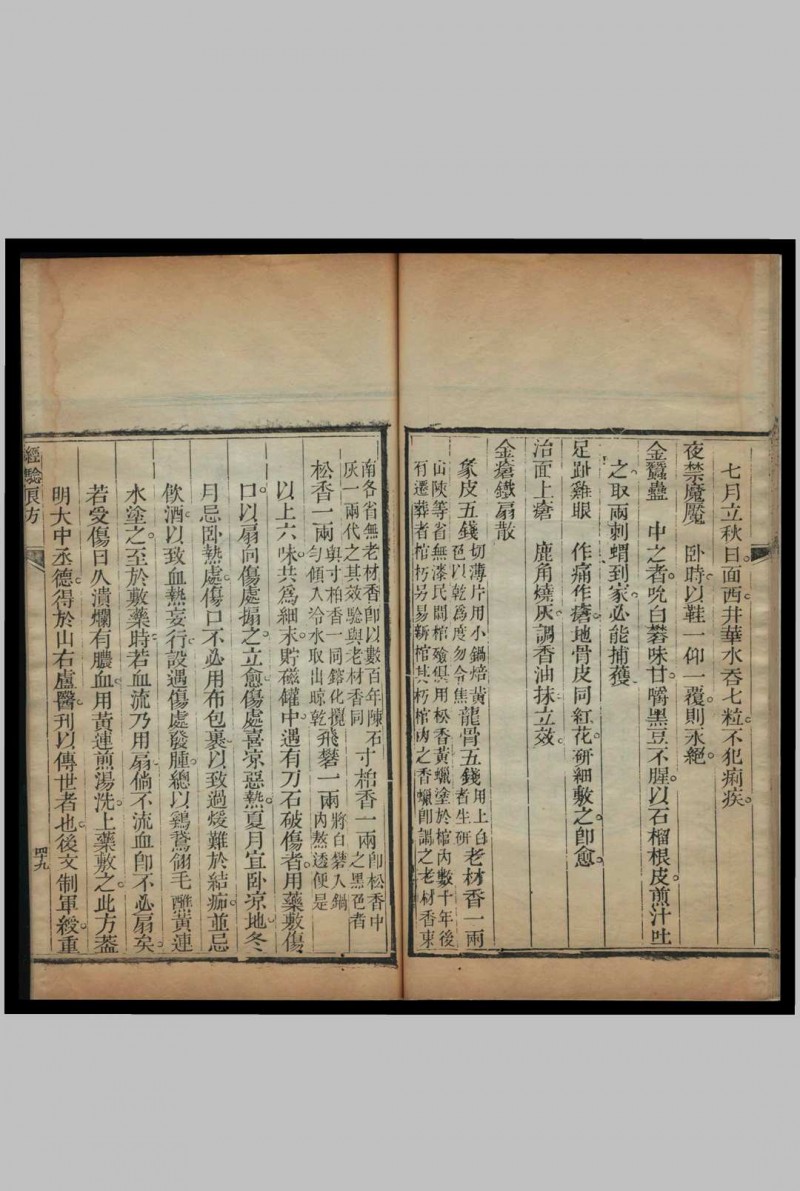 七月立秋日面西井華水吞七粒不犯痢疾
夜禁魔魘　臥時以鞋一仰一覆則永絕
金蠶蠱　中之者吮白礬味甘嚼黑豆不腥以石榴根皮煎汁吐
之取兩刺蝟到家必能捕獲
足趾雞眼　作痛作瘡地骨皮同紅花研細敷之卽愈
治面上瘡　鹿角燒灰調香油抹立效
金瘡鐵扇散
象皮五錢切薄片用小鍋焙黃色以乾爲度勿令焦龍骨五錢用上白者生研老材香一兩
山陝等省無漆民間棺殮俱用松香黃蠟塗於棺內數十年後
有遷葬者棺朽另易新棺其朽棺內之香蠟卽謂之老材香東
南各省無老材香卽以數百年陳石
灰一兩代之其效驗與老材香同寸柏香一兩卽松香中之黑色者
松香一兩與寸柏香一同鎔化攪勻傾入冷水取出晾乾飛礬一兩將白礬入鍋內熬透便是
以上六味共爲細末貯磁罐中遇有刀石破傷者用藥敷傷
口以扇向傷處搧之立愈傷處喜凉惡熱夏月宜臥凉地冬
月忌臥熱處傷口不必用布包裹以致過煖難於結痂並忌
飮酒以致血熱妄行設遇傷處發腫總以鷄鵞翎毛蘸黃連
水塗之至於敷藥時若血流乃用扇倘不流血卽不必扇矣
若受傷日久潰爛有膿血用黃連煎湯洗上藥敷之此方葢
明大中丞德得於山右盧醫刊以傳世者也後文制軍綬重
經驗良方
四十九